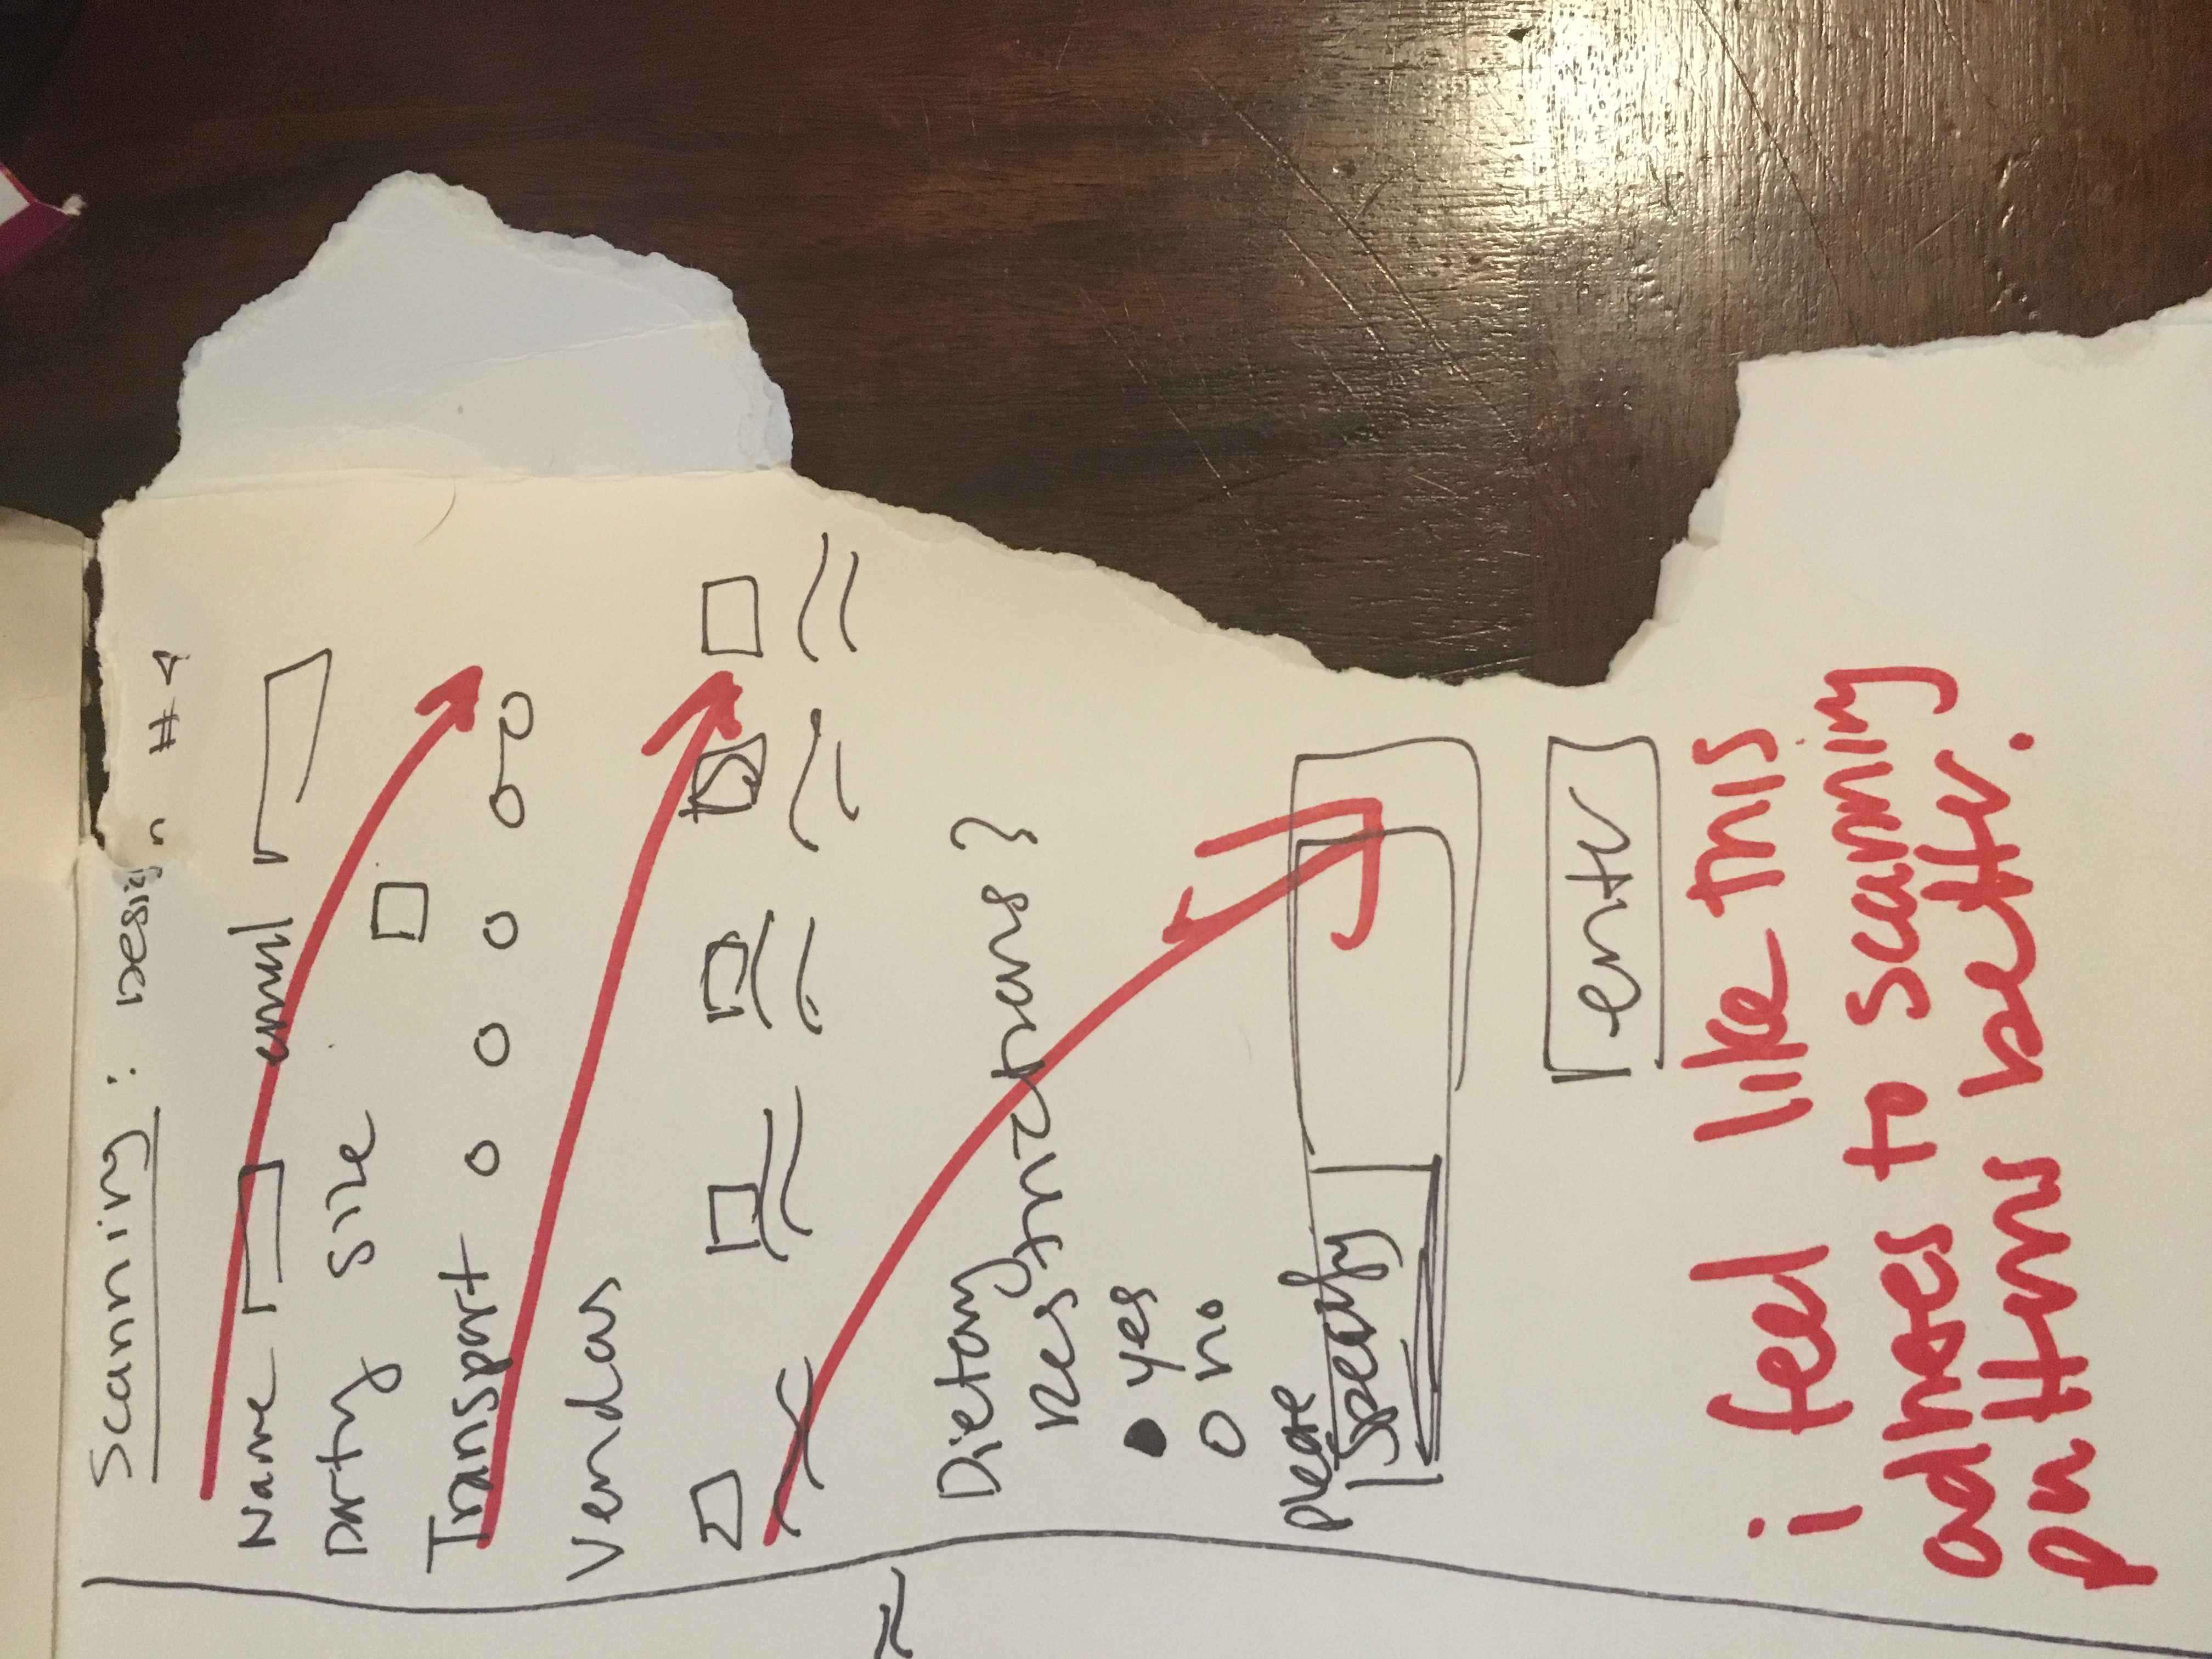 Scanning: Design #4
Name email
Party size
Transport
Vendors
Dietary
Restrictions?
yes
no
please
specify
enter
i feel like this
adheres to scanning
patterns better.